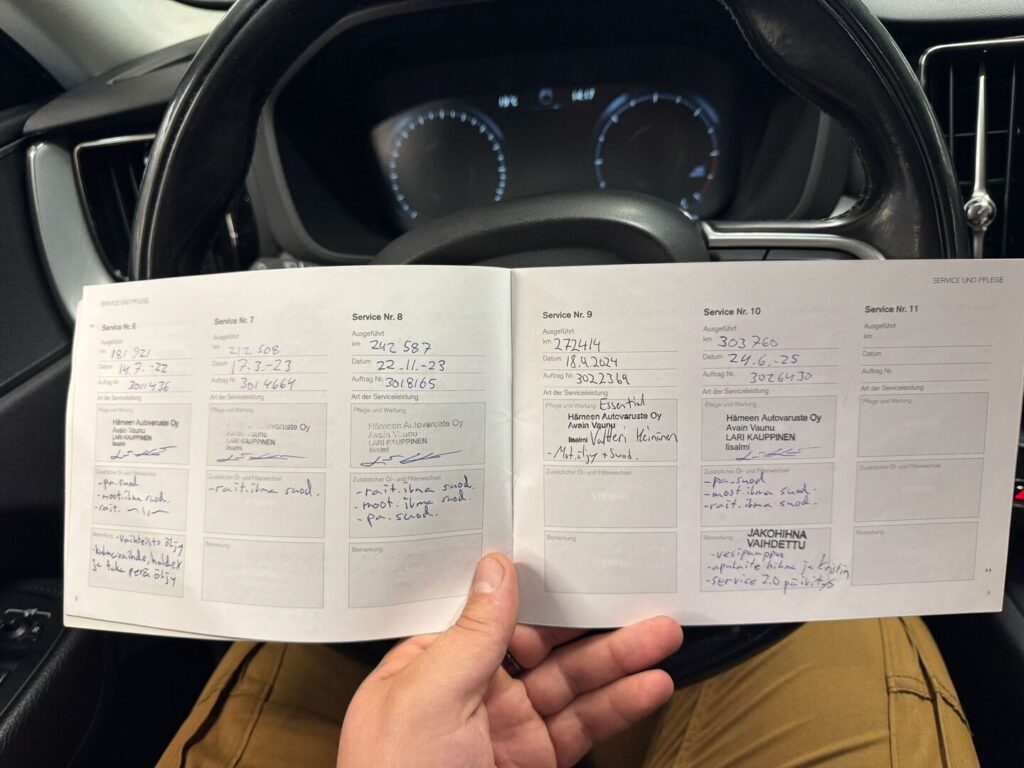 SERVICE UND PFLEGE
Service Nr. 6
Ausgeführt
km 181 921
Datum 14.7.-22
Auftrag Nr. 3011436
Art der Serviceleistung
Pflege und Wartung
Hämeen Autovaruste Oy
Avain Vaunu
LARI KAUPPINEN
Iisalmi
Zusätzlicher Öl- und Filterwechsel
-pa.suod.
-moot.ilma suod.
-rait. —11—
Bemerkung
-Vaihteisto öljy
-kulmavaihde, haldex
ja taka perä öljy
Service Nr. 7
Ausgeführt
km 212 508
Datum 17.3.-23
Auftrag Nr. 3014664
Art der Serviceleistung
Pflege und Wartung
Hämeen Autovaruste Oy
Avain Vaunu
LARI KAUPPINEN
Iisalmi
Zusätzlicher Öl- und Filterwechsel
-rait.ilma suod.
STEMPEL
Bemerkung
STEMPEL
Service Nr. 8
Ausgeführt
km 242 587
Datum 22.11.-23
Auftrag Nr. 3018165
Art der Serviceleistung
Pflege und Wartung
Hämeen Autovaruste Oy
Avain Vaunu
LARI KAUPPINEN
Iisalmi
Zusätzlicher Öl- und Filterwechsel
-rait.ilma suod.
-moot.ilma suod.
-pa.suod.
Bemerkung
STEMPEL
8
SERVICE UND PFLEGE
Service Nr. 9
Ausgeführt
km 272414
Datum 18.4.2024
Auftrag Nr. 3022369
Art der Serviceleistung
Pflege und Wartung Essential
Hämeen Autovaruste Oy
Avain Vaunu
Iisalmi Valtteri Keinänen
- Mot.öljy + Suod.
Zusätzlicher Öl- und Filterwechsel
STEMPEL
Bemerkung
STEMPEL
Service Nr. 10
Ausgeführt
km 303 760
Datum 24.6.-25
Auftrag Nr. 3026430
Art der Serviceleistung
Pflege und Wartung
Hämeen Autovaruste Oy
Avain Vaunu
LARI KAUPPINEN
Iisalmi
Zusätzlicher Öl- und Filterwechsel
-pa.suod
-moot.ilma suod.
-rait.ilma suod.
Bemerkung
JAKOHIHNA
VAIHDETTU
-vesipumppu
-apulaite hihna ja kiristin
-service 2.0 päivitys
Service Nr. 11
Ausgeführt
km
Datum
Auftrag Nr.
Art der Serviceleistung
Pflege und Wartung
STEMPEL
Zusätzlicher Öl- und Filterwechsel
STEMPEL
Bemerkung
STEMPEL